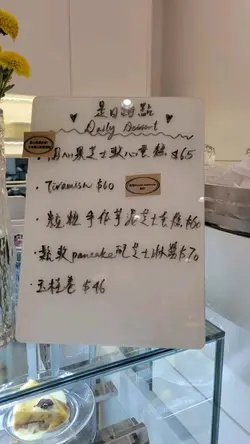 是日甜點
Daily Dessert
開心果芝士軟心蛋糕 $65
· Tiramisu $60
· 粒粒手作芋泥芝士蛋糕 $60
· 鬆軟pancake配芝士冰 $70
· 玉桂卷 $46